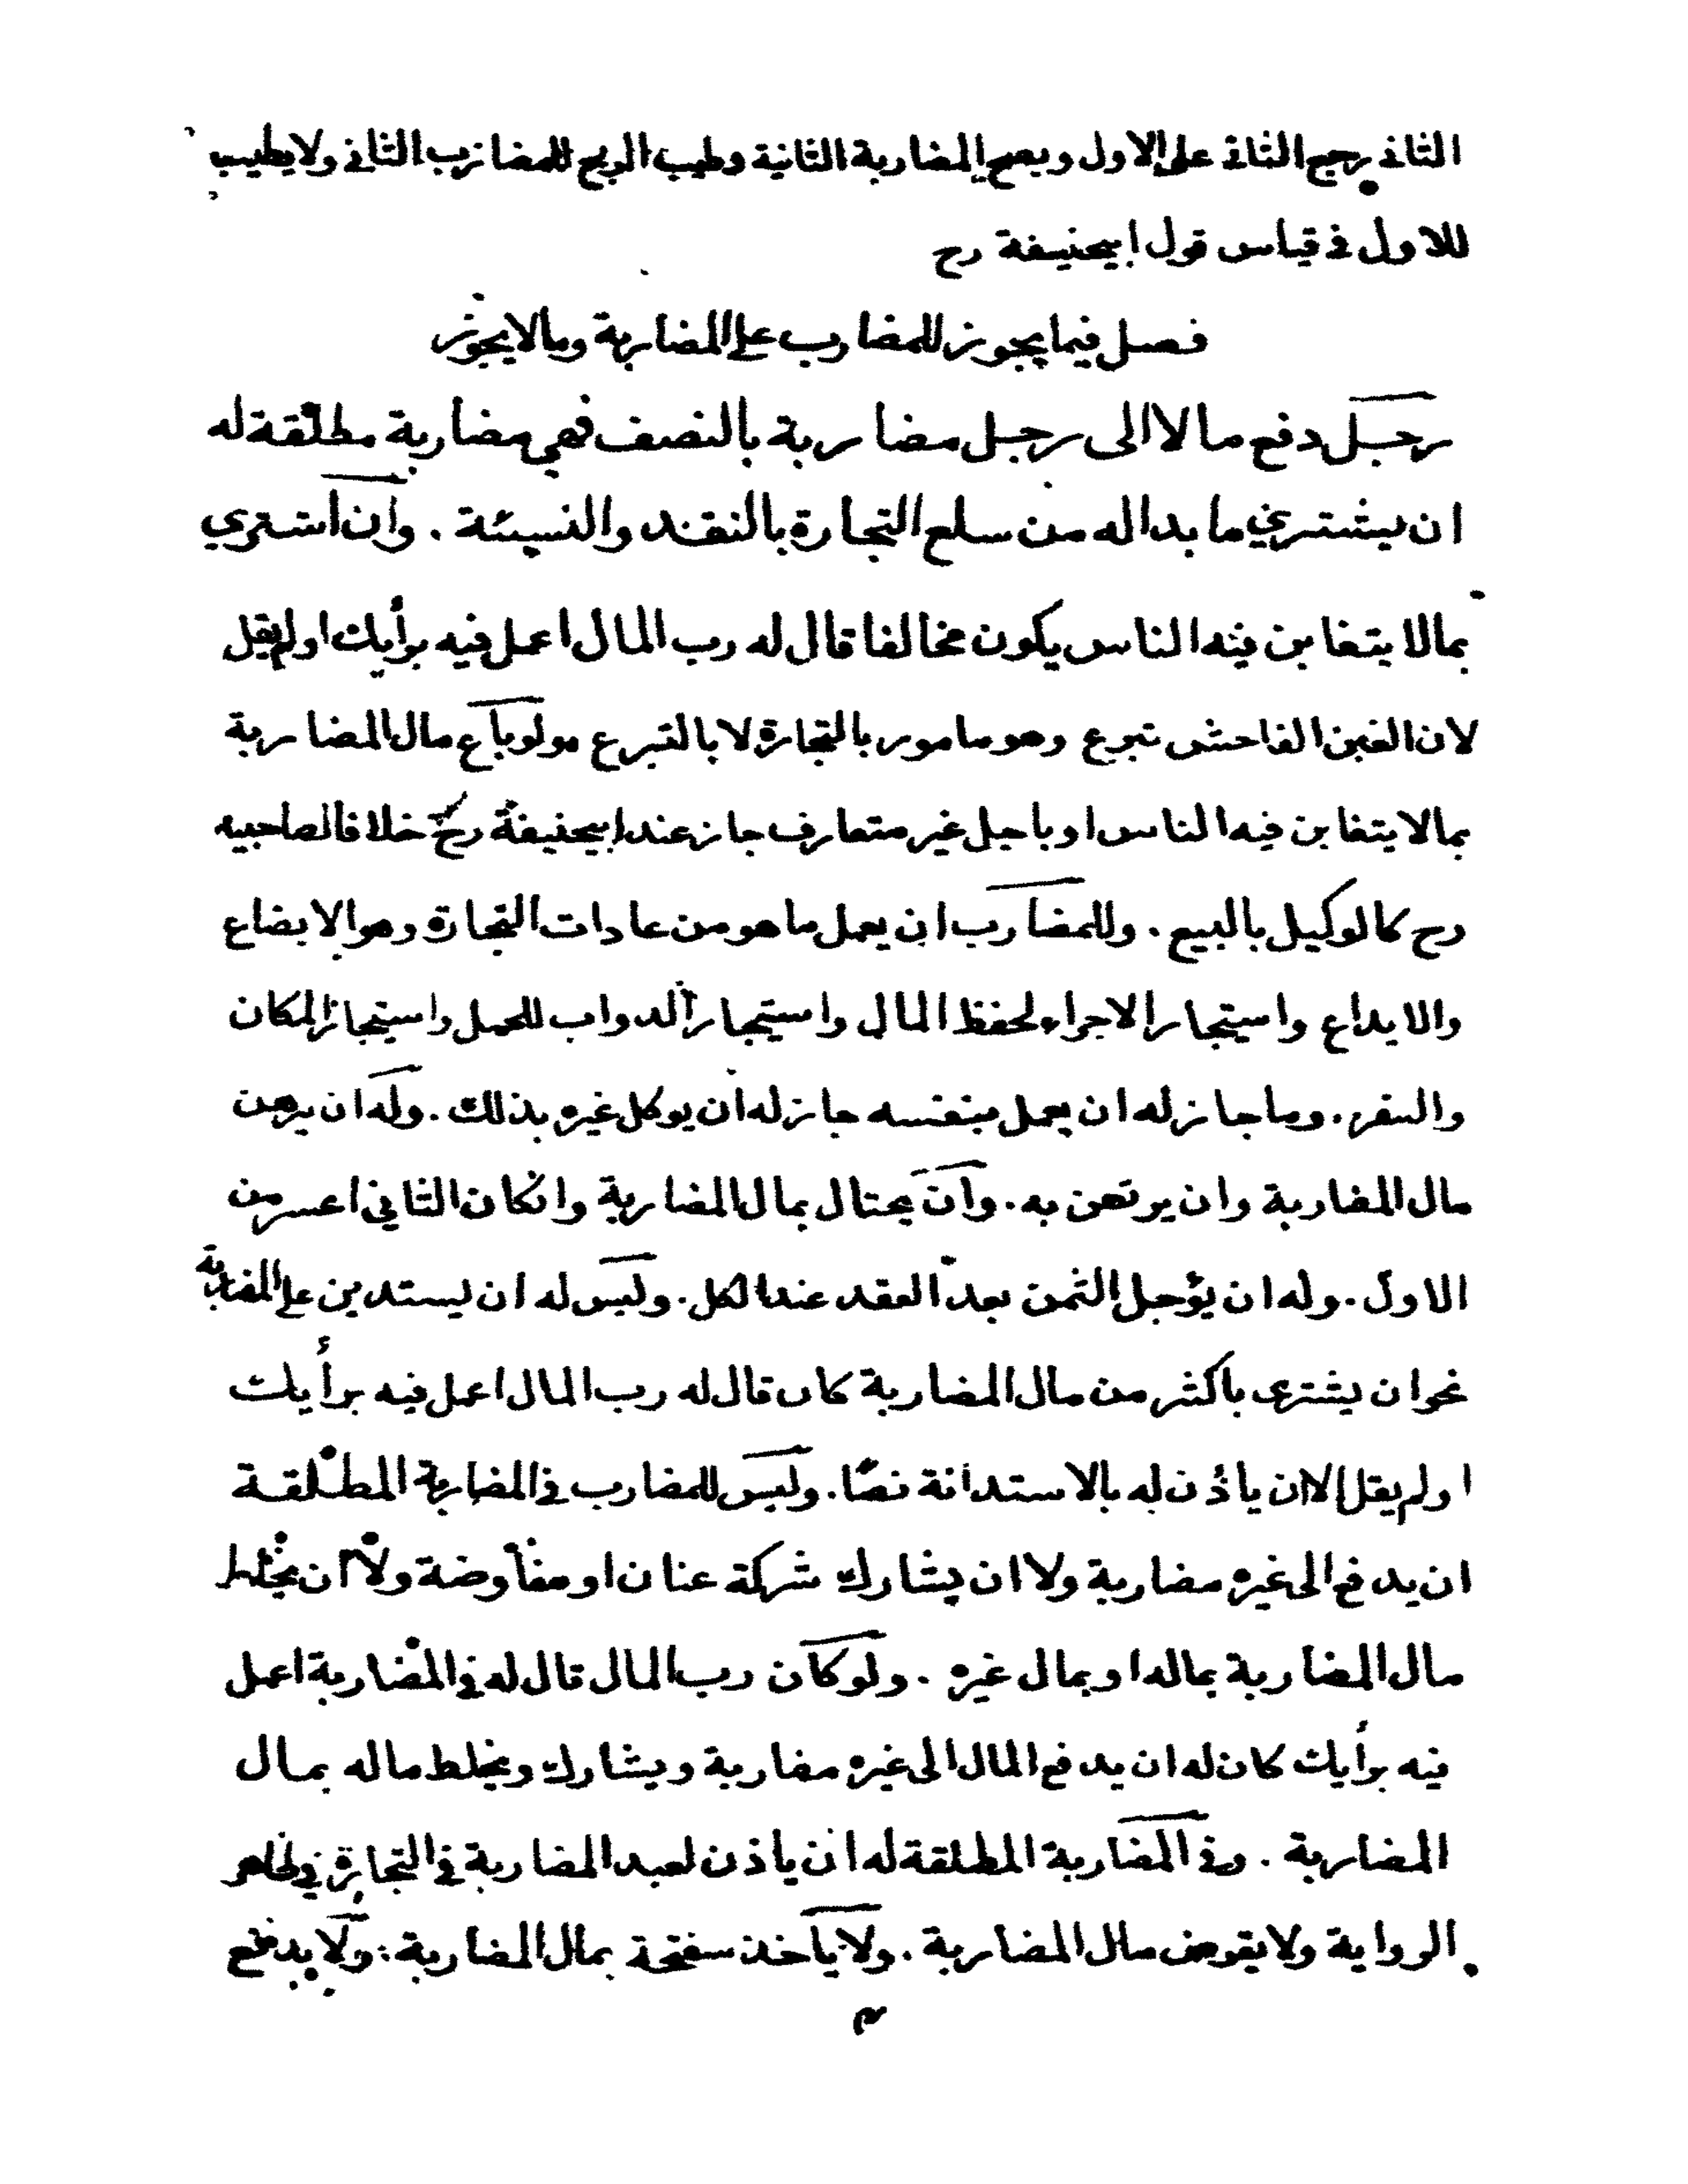 الثانى يرجع الثانى على الاول ويصح المضاربة الثانية وطيب الربح للمضارب الثانى ولا يطيب
للاول فى قياس قول ابيحنيفة رح
فصل فيما يجوز للمضارب على المضاربة وما لا يجوز
رجل دفع مالا الى رجل مضاربة بالنصف فهى مضاربة مطلقة له
ان يشترى ما بدا له من سلع التجارة بالنقد والنسيئة . وان اشترى
بما لا يتغابن فيه الناس يكون مخالفا قال له رب المال اعمل فيه برأيك او لم يقل
لان الغبن الفاحش تبرع وهو مامور بالتجارة لا بالتبرع ولو باع مال المضاربة
بما لا يتغابن فيه الناس او باجل غير متعارف جاز عند ابيحنيفة رح خلافا لصاحبيه
رح كالوكيل بالبيع . وللمضارب ان يعمل ما هو من عادات التجارة وهو الابضاع
والايداع واستيجار الاجراء لحفظ المال واستيجار الدواب للحمل واستيجار المكان
والسفر . وما جاز له ان يعمل بنفسه جاز له ان يوكل غيره بذلك . وله ان يرهن
مال المضاربة وان يرتهن به . وان يحتال بمال المضاربة وانكان الثانى اعسر من
الاول . وله ان يؤجل الثمن بعد العقد عند الكل . وليس له ان يستدين على المضاربة
نحو ان يشترى باكثر من مال المضاربة كان قال له رب المال اعمل فيه برأيك
او لم يقل الا ان ياذن له بالاستدانة نصّا . وليس للمضارب فى المضاربة المطلقة
ان يدفع الى غيره مضاربة ولا ان يشارك شركة عنان او مفاوضة ولا ان يخلط
مال المضاربة بماله او بمال غيره . ولو كان رب المال قال له فى المضاربة اعمل
فيه برأيك كان له ان يدفع المال الى غيره مضاربة ويشارك ويخلط ماله بمال
المضاربة . وفى المضاربة المطلقة له ان ياذن لعبد المضاربة فى التجارة فى ظاهر
الرواية ولا يقرض مال المضاربة . ولا ياخذ سفتجة بمال المضاربة . ولا يدفع